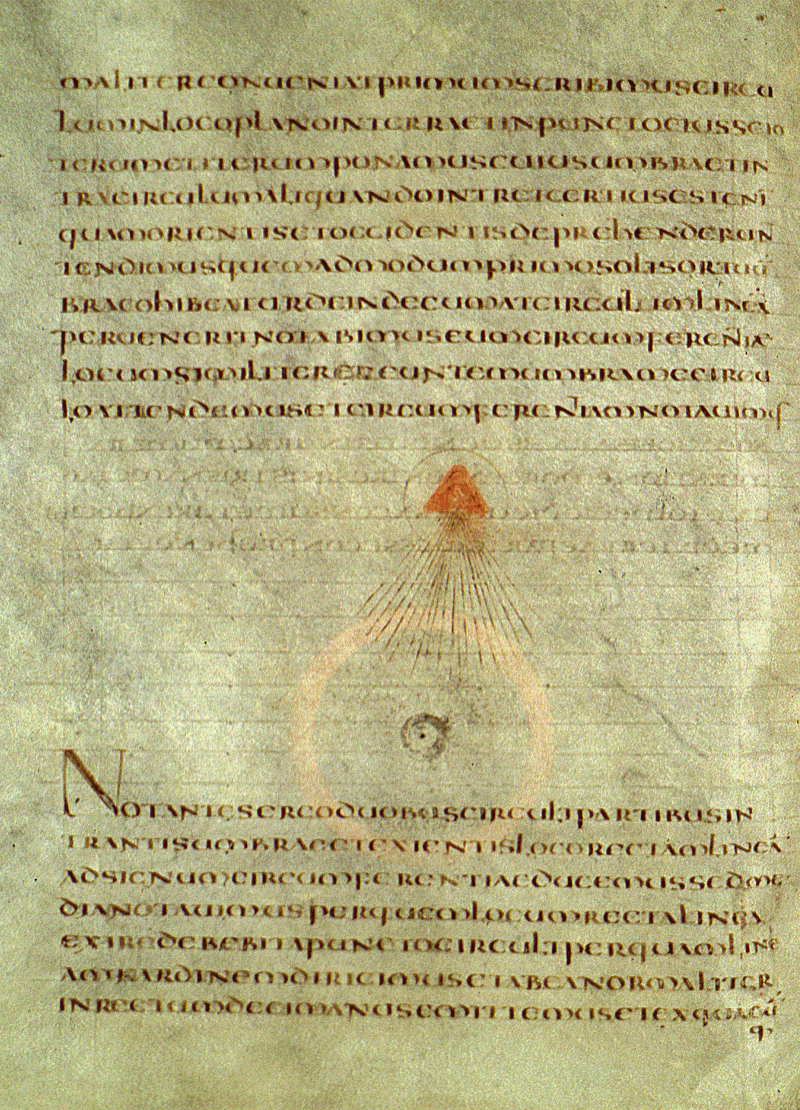 MALITERCONUENIATPRIMUMSCRIBIMUSCIRCU
LUMINLOCOPLANOINTERRAETINPUNCTOEIUSSCIO
TERUMETITERUMPONAMUSCUIUSUMBRAETIN
TRACIRCULUMALIQUANDOINTRETCERTIUSESTENI
QUAMORIENTISETOCCIDENTISDEPREHENDERUN
TENDIMUSQUEMADMODUMPRIMOSOLISORTUU
BRACOHIBEATURDEINDECUMATCIRCULILINEA
PERUENERITNOTABIMUSEUMCIRCUMFERENTIAE
LOCUMSIMILITEREXEUNTEMUMBRAMECIRCU
LOATTENDEMUSETCIRCUMFERENTIAMNOTAUIMUS
NOTATISERGODUOBUSCIRCULIPARTIBUSIN
TRANTISUMBRAEETEXIENTISLOCORECTAMLINEA
ADSIGNUMCIRCUMFERENTIAEDUCEMUSSEDME
DIANOTAUIMUSPERQUEMLOCUMRECTALINEA
EXIREDEBEBITAPUNCTOCIRCULIPERQUAMLINE
AMKARDINEMDIRICIMUSETABEANORMALITER
INRECTUMDECIMANUSEMITTEMUSETEXQUACU
Q·